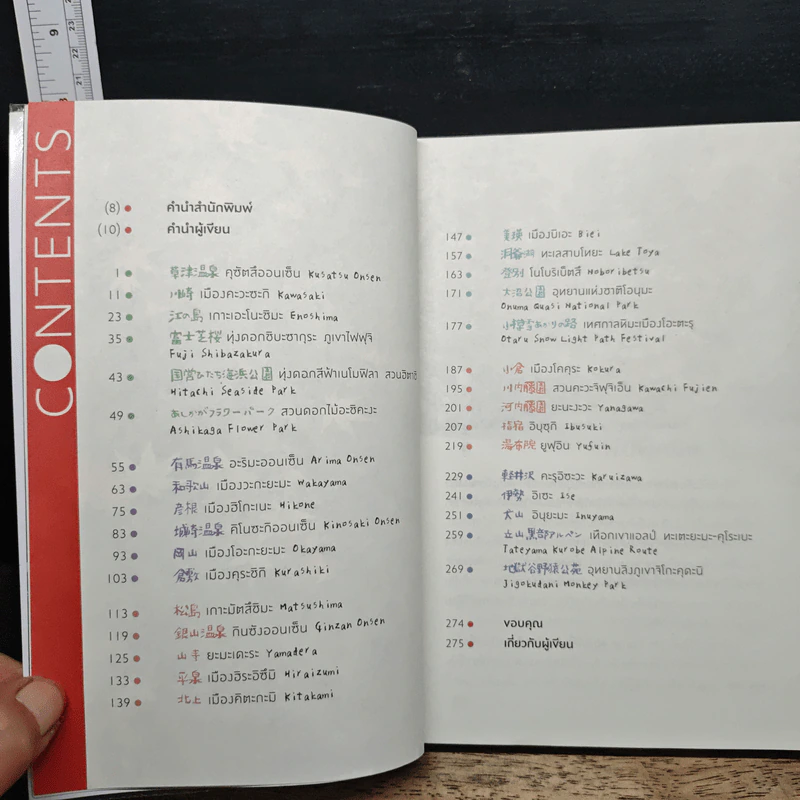 9
23
22
21
CONTENTS
(8) คำนำสำนักพิมพ์
(10) คำนำผู้เขียน
1 草津温泉 คุซัตสึออนเซ็น Kusatsu Onsen
11 川崎 เมืองคะวะซะกิ Kawasaki
23 江の島 เกาะเอะโนะชิมะ Enoshima
35 富士芝桜 ทุ่งดอกชิบะซากุระ ภูเขาไฟฟูจิ
Fuji Shibazakura
43 国営ひたち海浜公園 ทุ่งดอกสีฟ้าเนโมฟีลา สวนฮิตาชิ
Hitachi Seaside Park
49 あしかがフラワーパーク สวนดอกไม้อะชิคะงะ
Ashikaga Flower Park
55 有馬温泉 อะริมะออนเซ็น Arima Onsen
63 和歌山 เมืองวะกะยะมะ Wakayama
75 彦根 เมืองฮิโกะเนะ Hikone
83 城崎温泉 คิโนะซะกิออนเซ็น Kinosaki Onsen
93 岡山 เมืองโอะกะยะมะ Okayama
103 倉敷 เมืองคุระชิกิ Kurashiki
113 松島 เกาะมัตสึชิมะ Matsushima
119 銀山温泉 กินซังออนเซ็น Ginzan Onsen
125 山寺 ยะมะเดะระ Yamadera
133 平泉 เมืองฮิระอิซึมิ Hiraizumi
139 北上 เมืองคิตะกะมิ Kitakami
147 美瑛 เมืองบิเอะ Biei
157 洞爺湖 ทะเลสาบโทยะ Lake Toya
163 登別 โนโบริเบ็ตสึ Noboribetsu
171 大沼公園 อุทยานแห่งชาติโอนุมะ
Onuma Quasi National Park
177 小樽雪あかりの路 เทศกาลหิมะเมืองโอะตะรุ
Otaru Snow Light Path Festival
187 小倉 เมืองโคคุระ Kokura
195 川内藤園 สวนคะวะจิฟุจิเอ็น Kawachi Fujien
201 河内藤園 ยะนะงะวะ Yanagawa
207 指宿 อิบุซุกิ Ibusuki
219 湯布院 ยูฟุอิน Yufuin
229 軽井沢 คะรุอิซะวะ Karuizawa
241 伊勢 อิเซะ Ise
251 犬山 อินุยะมะ Inuyama
259 立山黒部アルペン เทือกเขาแอลป์ ทะเตะยะมะ-คุโระเบะ
Tateyama Kurobe Alpine Route
269 地獄谷野猿公苑 อุทยานลิงภูเขาจิโกะคุดะนิ
Jigokudani Monkey Park
274 ขอบคุณ
275 เกี่ยวกับผู้เขียน